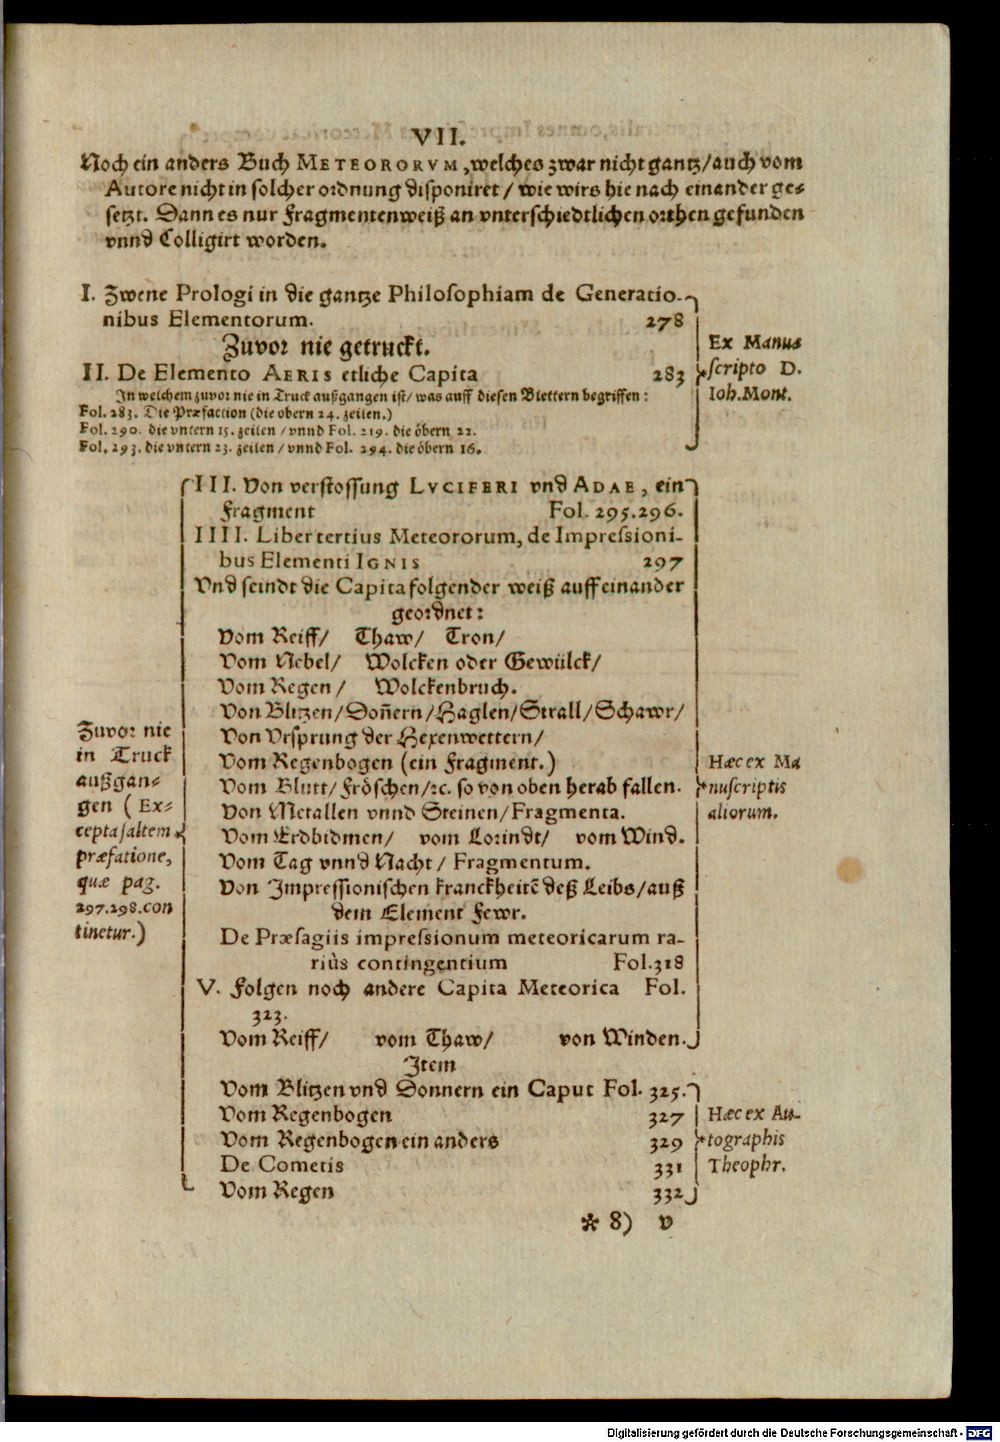 VII.
Noch ein anders Buch METEORORVM, welches zwar nicht gantz/auch vom
Autore nicht in solcher ordnung disponiret/ wie wirs hie nach einander ge-
setzt. Dann es nur Fragmentenweiß an vnterschiedtlichen orthen gefunden
vnnd Colligirt worden.
I. Zwene Prologi in die gantze Philosophiam de Generatio-
nibus Elementorum. 278
Zuvor nie getruckt.
II. De Elemento AERIS etliche Capita 283
In welchem zuvor nie in Truck außgangen ist/ was auff diesen Blettern begriffen:
Fol. 283. Die Præfaction (die obern 24. zeilen.)
Fol. 290. die vntern 15. zeilen/ vnnd Fol. 219. die öbern 22.
Fol. 293. die vntern 23. zeilen/ vnnd Fol. 294. die öbern 16.
Ex Manus
scripto D.
Ioh. Mont.
III. Von verstossung LVCIFERI vnd ADAE, ein
Fragment Fol. 295.296.
IIII. Liber tertius Meteororum, de Impressioni-
bus Elementi IGNIS 297
Vnd seindt die Capita folgender weiß auff einander
geordnet:
Vom Reiff/ Thaw/ Tron/
Vom Nebel/ Wolcken oder Gewülck/
Vom Regen/ Wolckenbruch.
Von Blitzen/Doñern/Haglen/Strall/Schawr/
Von Vrsprung der Hexenwettern/
Vom Regenbogen (ein Fragment.)
Vom Blutt/Fröschen/ꝛc. so von oben herab fallen.
Von Metallen vnnd Steinen/Fragmenta.
Vom Erdbidmen/ vom Lorindt/ vom Wind.
Vom Tag vnnd Nacht/ Fragmentum.
Von Impressionischen kranckheitē deß Leibs/auß
dem Element Fewr.
De Præsagiis impressionum meteoricarum ra-
riùs contingentium Fol.318
V. Folgen noch andere Capita Meteorica Fol.
323.
Vom Reiff/ vom Thaw/ von Winden.
Item
Vom Blitzen vnd Donnern ein Caput Fol. 325.
Vom Regenbogen 327
Vom Regenbogen ein anders 329
De Cometis 331
Vom Regen 332
Zuvor nie
in Truck
außgan-
gen (Ex-
cepta saltem
præfatione,
quæ pag.
297.298.con
tinetur.)
Hæc ex Ma
nuscriptis
aliorum.
Hæc ex Au-
tographis
Theophr.
* 8) v
Digitalisierung gefördert durch die Deutsche Forschungsgemeinschaft - DFG